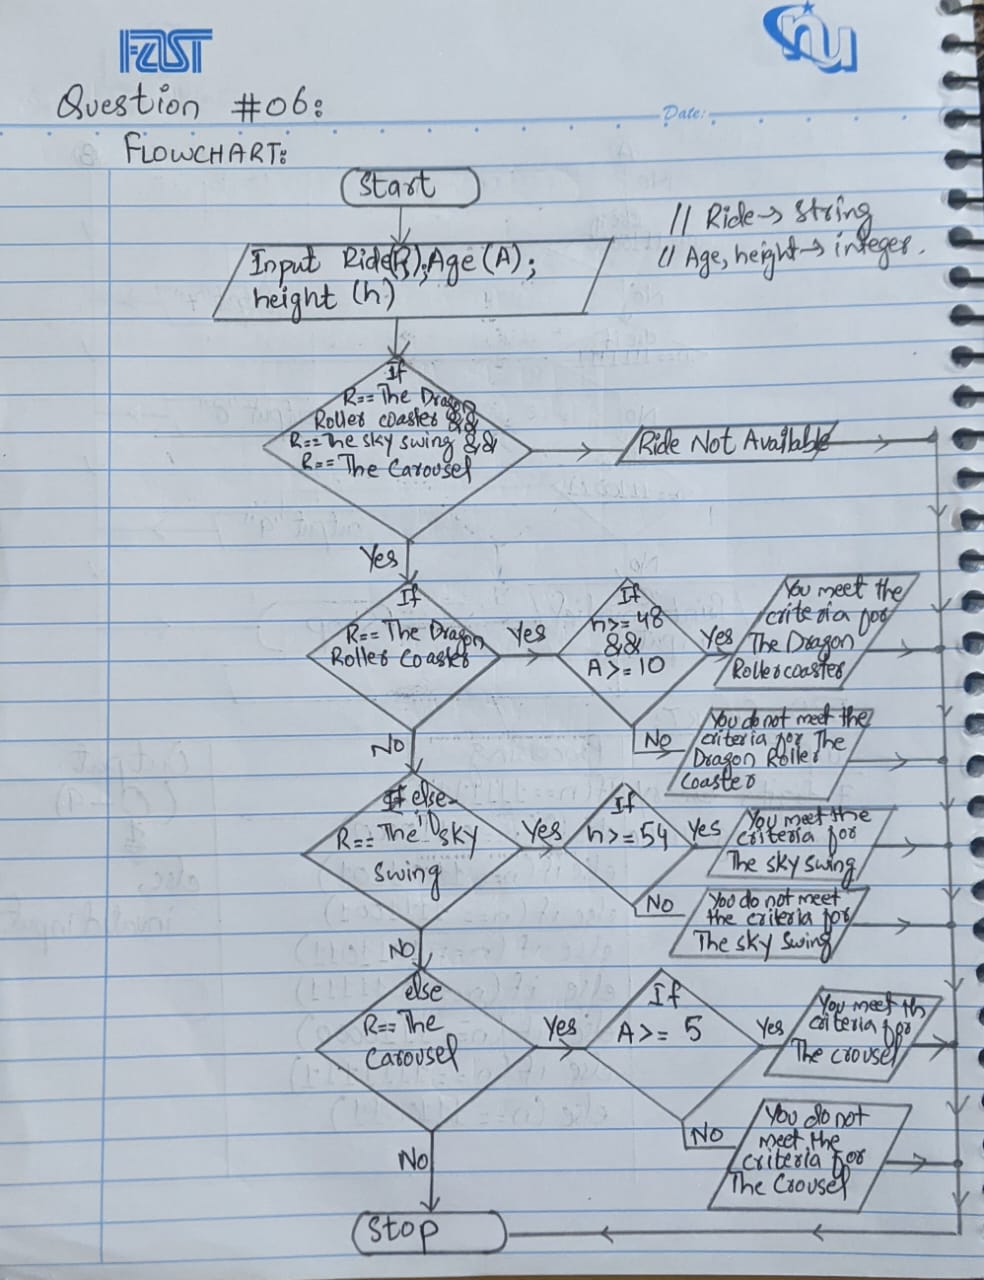 FAST
nu
Question #06:
Date:
FLOWCHART:
Start
// Ride → string
// Age, height → integer.
Input Ride(R); Age (A);
height (h)
If
R== The Dragon
Roller coaster &&
R== The sky swing &&
R== The Carousel
Ride Not Available
Yes
If
R== The Dragon
Roller Coaster
Yes
If
h>= 48
&&
A >= 10
Yes
You meet the
criteria for
The Dragon
Rollercoaster
No
You do not meet the
criteria for The
Dragon Roller
Coaster
No
If else
R== The sky
swing
Yes
If
h>= 54
Yes
You meet the
criteria for
The sky swing
No
You do not meet
the criteria for
The sky swing
No
else
R== The
Carousel
Yes
If
A >= 5
Yes
You meet th
criteria for
The crousel
No
You do not
meet the
criteria for
The Crousel
No
Stop